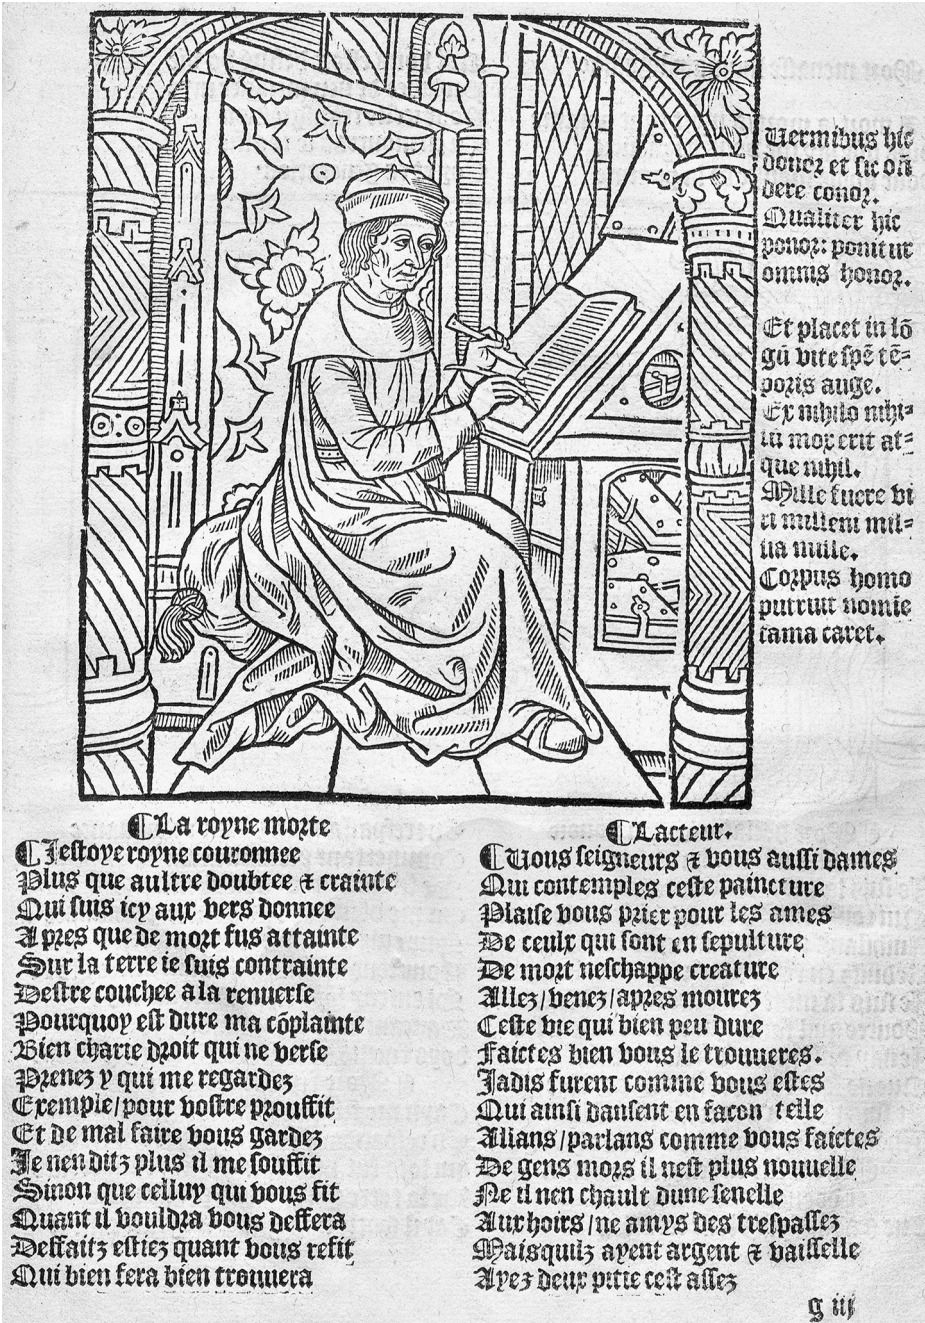 Vermibus hic
donor et sic oñ
dere conor.
Qualiter hic
ponor: ponitur
omnis honor.
Et placet in lõ
gũ vite spẽ tẽ-
poris auge.
Ex nihilo nihi-
lũ mox erit at-
que nihil.
Mille fuere vi
ri milleni mil-
lia mille.
Corpus homo
putruit nomĩe
fama caret.
❡La royne morte
❡Jestoye royne couronnee
Plus que aultre doubtee ⁊ crainte
Qui suis icy aux vers donnee
Apres que de mort fus attainte
Sur la terre ie suis contrainte
Destre couchee a la renuerse
Pourquoy est dure ma cõplainte
Bien charie droit qui ne verse
Prenez y qui me regardez
Exemple/pour vostre prouffit
Et de mal faire vous gardez
Je nen ditz plus il me souffit
Sinon que celluy qui vous fit
Quant il vouldra vous deffera
Deffaitz estiez quant vous refit
Qui bien fera bien trouuera
❡Lacteur.
❡Vous seigneurs ⁊ vous aussi dames
Qui contemples ceste paincture
Plaise vous prier pour les ames
De ceulx qui sont en sepulture
De mort neschappe creature
Allez/venez/apres mourez
Ceste vie qui bien peu dure
Faictes bien vous le trouueres.
Jadis furent comme vous estes
Qui ainsi dansent en facon telle
Allans/parlans comme vous faictes
De gens mors il nest plus nouuelle
Ne il nen chault dune senelle
Aux hoirs/ne amys des trespassez
Mais quilz ayent argent ⁊ vaisselle
Ayez deux pitie cest assez
g iii